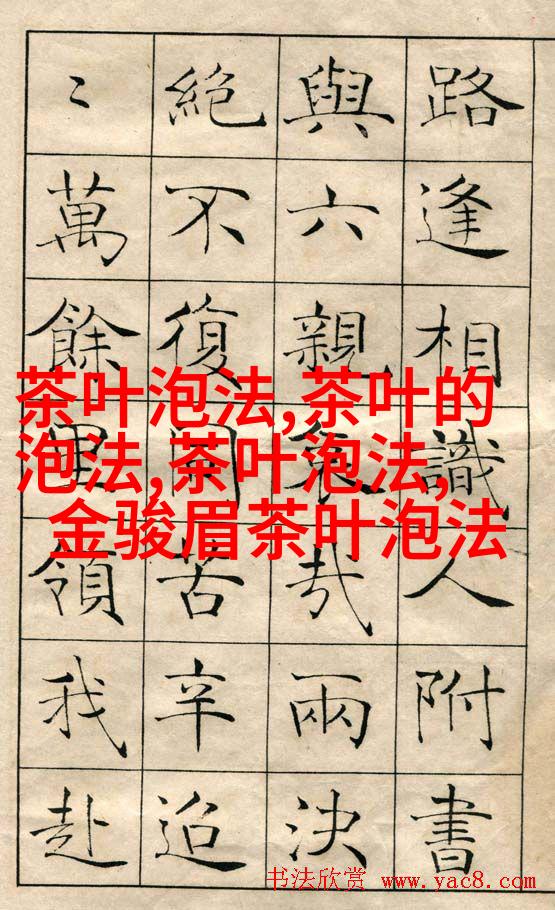 路逢相識人附書
與六親哀哉兩決
絶不復同苦辛迢
〻萬餘里領我赴
茶叶泡法,茶叶的
泡法,茶叶泡法,
金骏眉茶叶泡法
书法欣赏 www.yac8.com